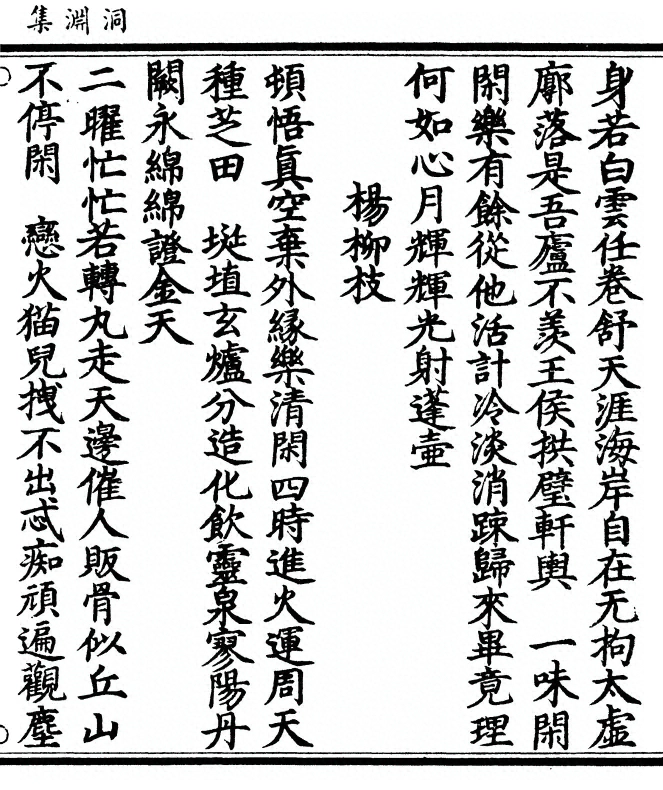 洞淵集
身若白雲任卷舒天涯海岸自在无拘太虛
廓落是吾廬不羨王侯拱璧軒輿　一味閑
閑樂有餘從他活計冷淡消踈歸來畢竟理
何如心月輝輝光射蓬壺
楊柳枝
頓悟眞空棄外緣樂清閑四時進火運周天
種芝田　埏埴玄爐分造化飲靈泉寥陽丹
闕永綿綿證金天
二曜忙忙若轉丸走天邊催人販骨似丘山
不停閑　戀火猫兒拽不出忒痴頑遍觀塵